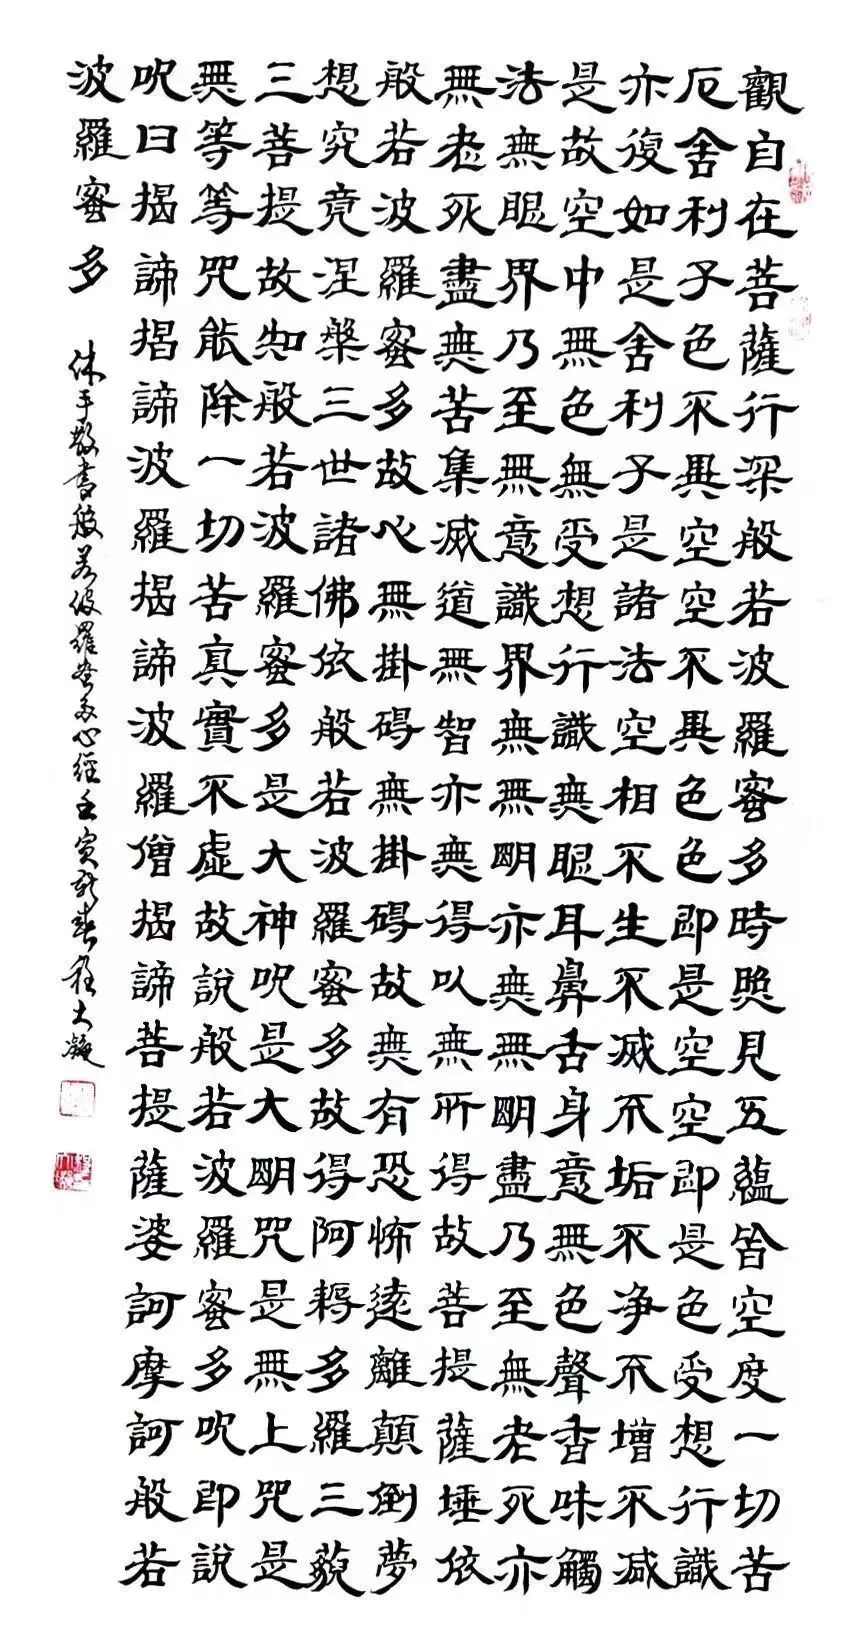 觀自在菩薩行深般若波羅蜜多時照見五蘊皆空度一切苦
厄舍利子色不異空空不異色色即是空空即是色受想行識
亦復如是舍利子是諸法空相不生不滅不垢不净不增不減
是故空中無色無受想行識無眼耳鼻舌身意無色聲香味觸
法無眼界乃至無意識界無無明亦無無明盡乃至無老死亦
無老死盡無苦集滅道無智亦無得以無所得故菩提薩埵依
般若波羅蜜多故心無掛碍無掛碍故無有恐怖遠離顛倒夢
想究竟涅槃三世諸佛依般若波羅蜜多故得阿耨多羅三藐
三菩提故知般若波羅蜜多是大神咒是大明咒是無上咒是
無等等咒能除一切苦真實不虛故說般若波羅蜜多咒即說
咒曰揭諦揭諦波羅揭諦波羅僧揭諦菩提薩婆訶摩訶般若
波羅蜜多
沐手敬書般若波羅蜜多心經壬寅新春